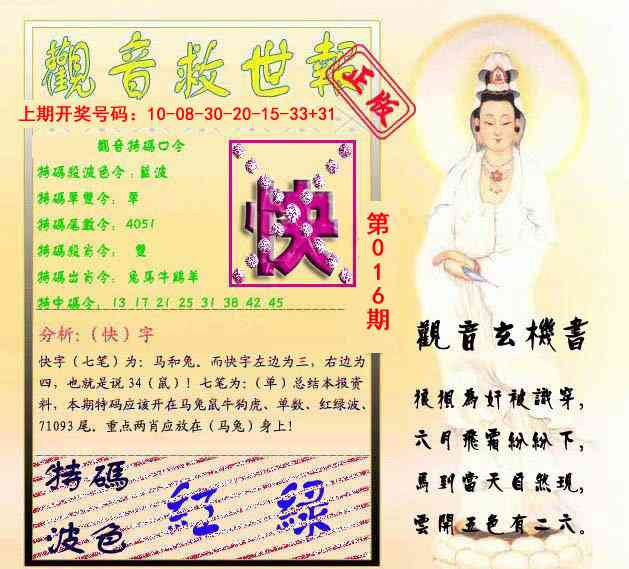 觀音救世報
正版
上期开奖号码：10-08-30-20-15-33+31
觀音特碼口令
特碼段波色令：藍波
特碼單雙令：單
特碼尾數令：4051
特碼段肖令：雙
特碼出肖令：兔馬牛鷄羊
特中碼令：13 17 21 25 31 38 42 45
快
第016期
分析:（快）字
快字（七笔）为：马和兔。而快字左边为三，右边为
四，也就是说 34（鼠）！七笔为:（单）总结本报资
料，本期特码应该开在马兔鼠牛狗虎、单数、红绿波、
71093 尾。重点两肖应放在（马兔）身上！
特碼
波色
紅 綠
觀音玄機書
狼狽為奸被識穿，
六月飛霜紛紛下，
馬到當天自然現，
雲開五色有二六。